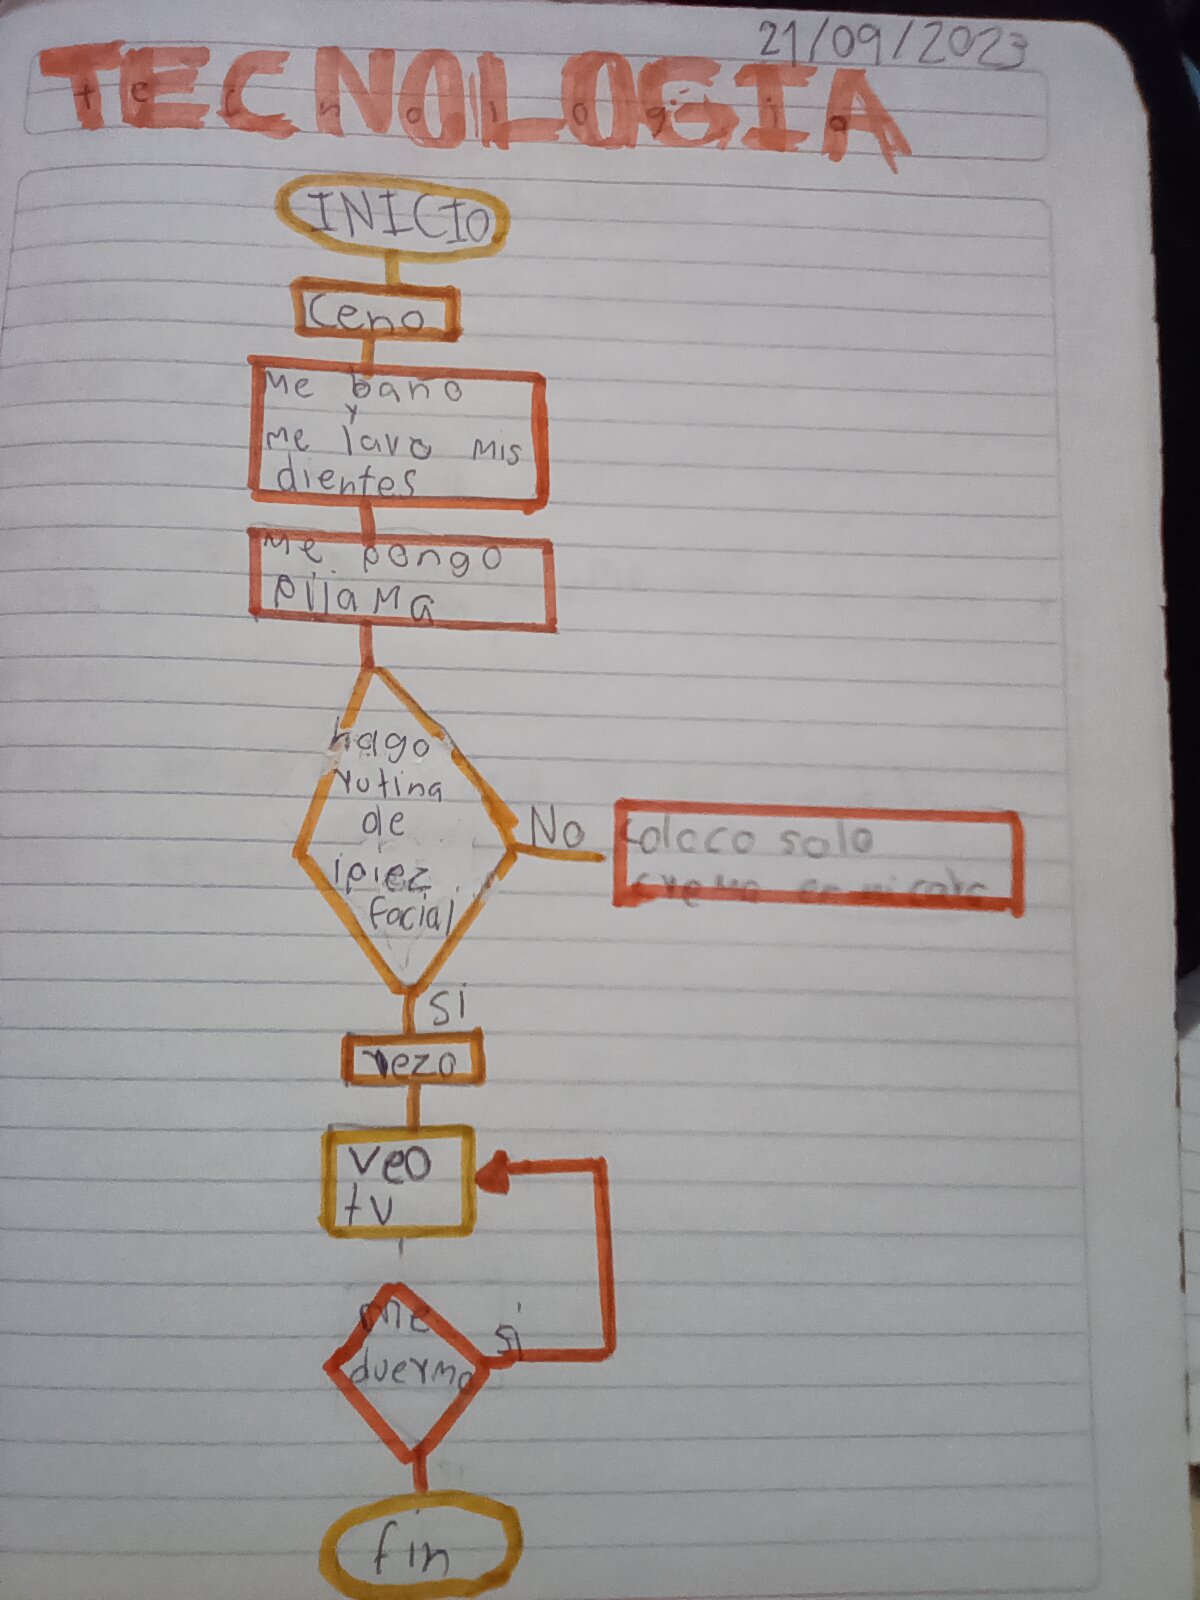 21/09/2023
TECNOLOGIA
tecnologia
INICIO
Ceno
Me baño
y
Me lavo mis
dientes
Me pongo
pijama
hago
rutina
de
ipiez
facial
No
Coloco solo
crema en mi cara
si
rezo
veo
tv
me
duermo
si
fin